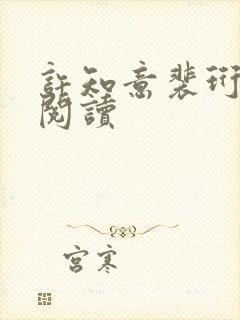 許知意裴珩
閱讀
宮寒